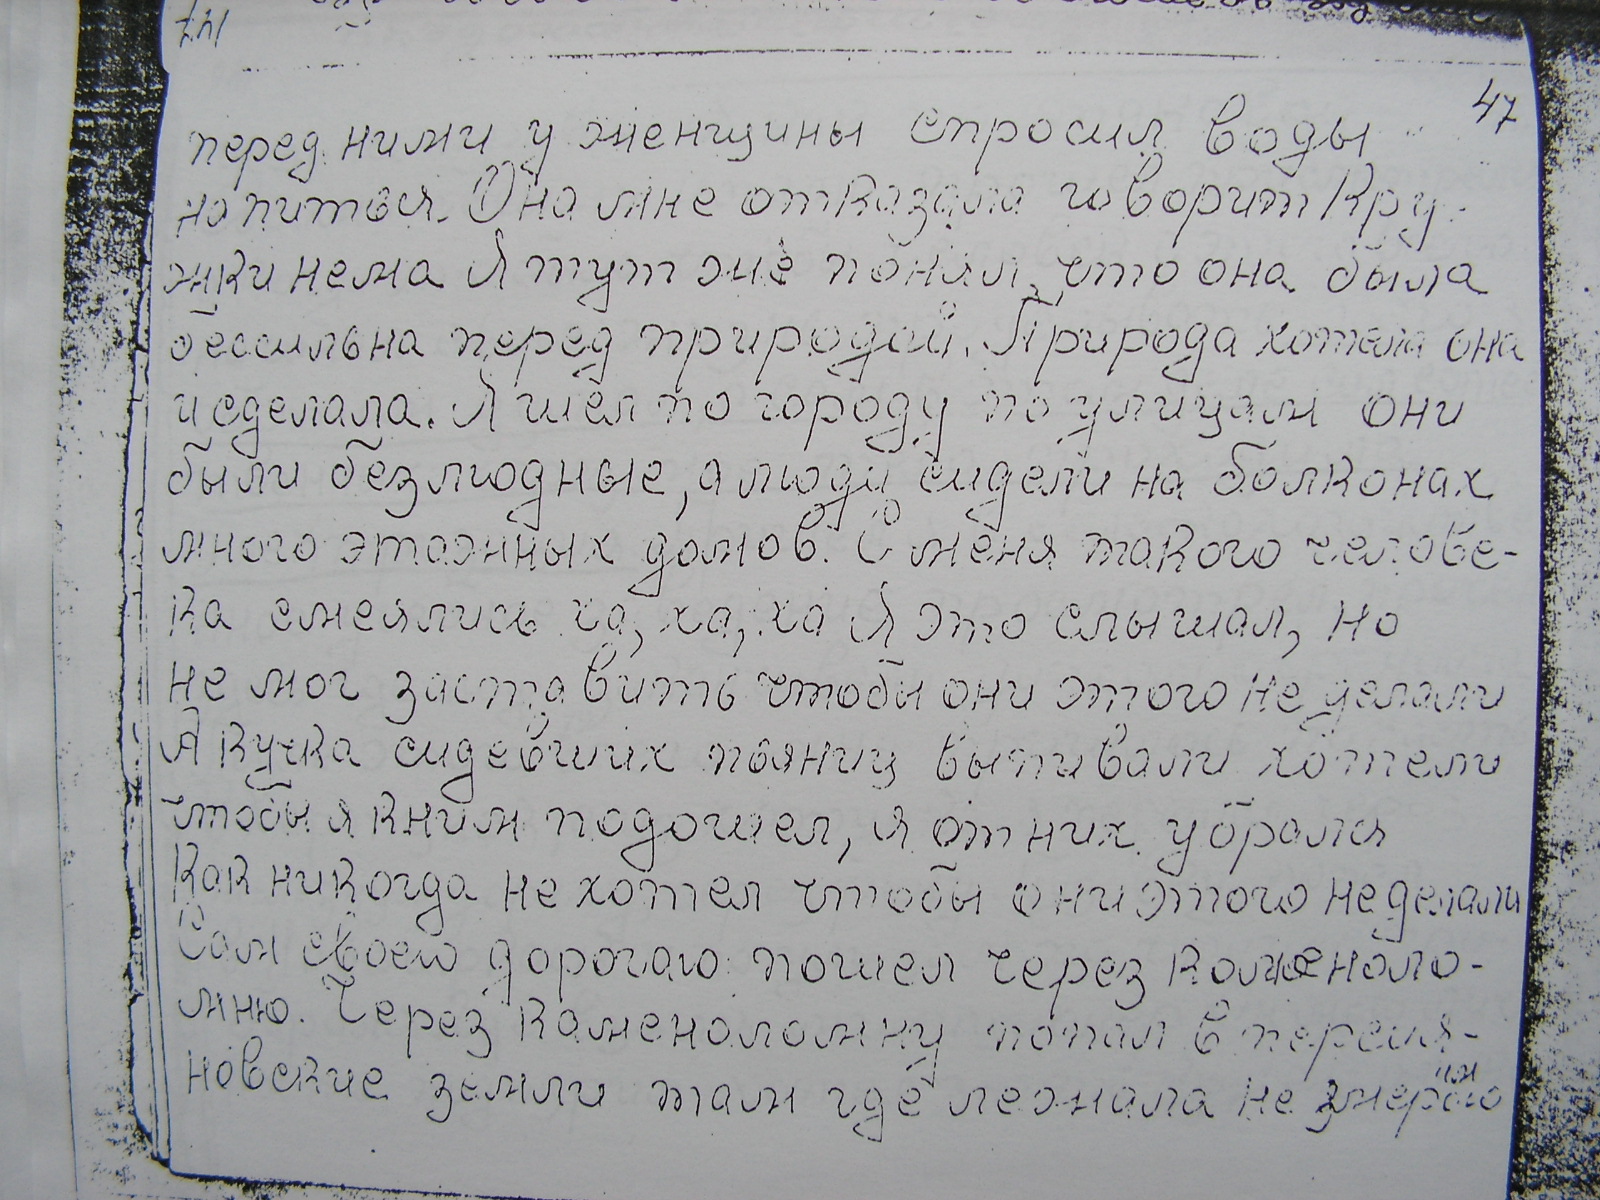 47
перед ними у женщины спросил воды
напиться. Она мне отказала говорит кру-
жки нема Я тут же понял, что она была
бессильна перед природай. Природа хотела она
и сделала. Я шёл по городу по улицам они
были безлюдные, а люди сидели на болконах
много этажных домов. С меня такого челове-
ка смеялись ха, ха, ха Я это слышал, но
не мог заставить чтобы они этого не делали
А кучка сидевших пьяниц выпивали хотели
чтобы я к ним подошел, я от них убрался
Как никогда не хотел чтобы они этого не делали
Сам своею дорогаю пошел через каменоло-
мню. Через каменоломну попал в персия-
новские земли там где лежала не